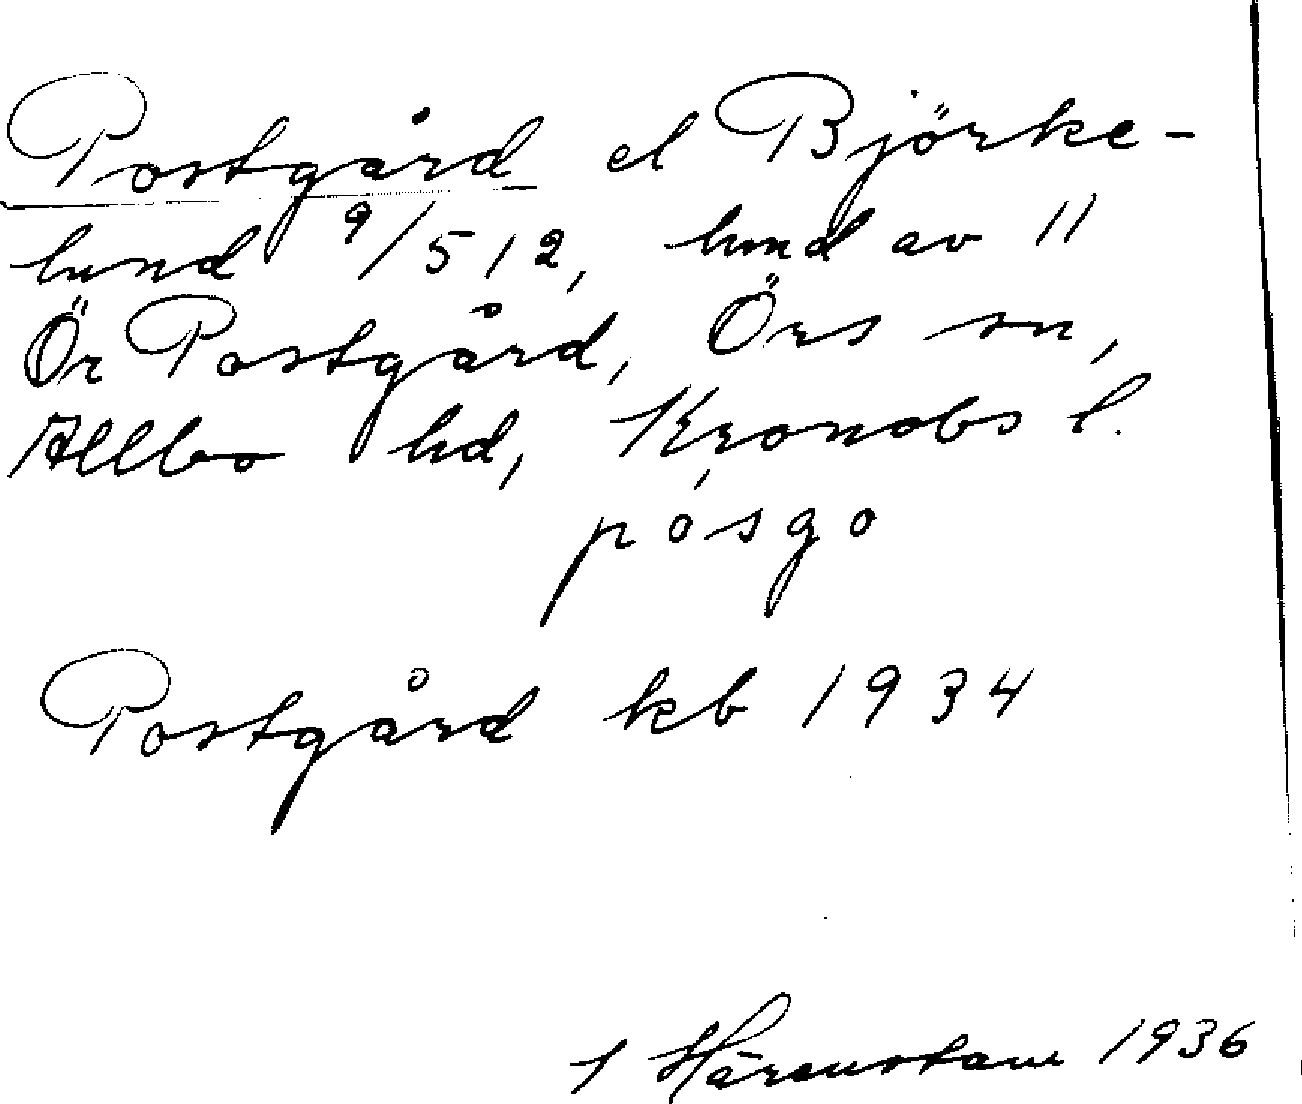 Postgård el Björke-
lund 9/512, lund av 11
Ör Postgård, Örs sn,
Allbo hd, Kronobs l.
pósgo
Postgård kb 1934
1936